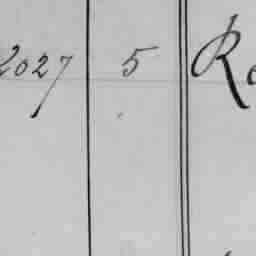 2027 5 Re